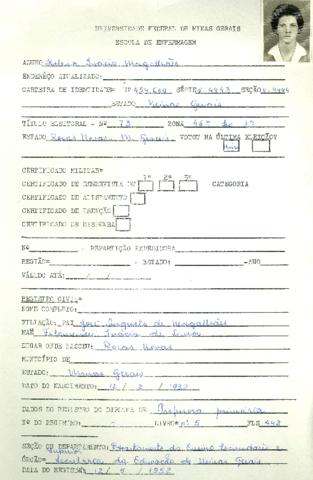 UNIVERSIDADE FEDERAL DE MINAS GERAIS
ESCOLA DE ENFERMAGEM
ALUNO: Inácio Magalhães
ENDEREÇO ATUALIZADO:
CARTEIRA DE IDENTIDADE= Nº SÉRIE SEÇÃO
ESTADO Minas Gerais
TÍTULO ELEITORAL - Nº 73 ZONA
ESTADO Rosas Novas M. Gerais VOTOU NA ÚLTIMA ELEIÇÃO?
CERTIFICADO MILITAR=
CERTIFICADO DE RESERVISTA DE 1ª 2ª 3ª CATEGORIA
CERTIFICADO DE ALISTAMENTO
CERTIFICADO DE ISENÇÃO
CERTIFICADO DE DISPENSA
Nº - REPARTIÇÃO EXPEDIDORA
REGIÃO= - ESTADO: -ANO
VÁLIDO ATÉ: / /
REGISTRO CIVIL=
NOME COMPLETO:
FILIAÇÃO: PAI José Augusto de Magalhães
MÃE Filomena Inácio de
LUGAR ONDE NASCEU: Rosas Novas
MUNICÍPIO DE
ESTADO: Minas Gerais
DATA DO NASCIMENTO: / 2 /
DADOS DO REGISTRO DO DIPLOMA DE Professora primária
Nº DO REGISTRO: - LIVRO= nº 5 FLS 442
SEÇÃO OU DEPARTAMENTO: Departamento do Ensino Secundário e
Superior
ÓRGÃO= Secretaria da Educação de Minas Gerais
DATA DO REGISTRO: 12 / / 1952